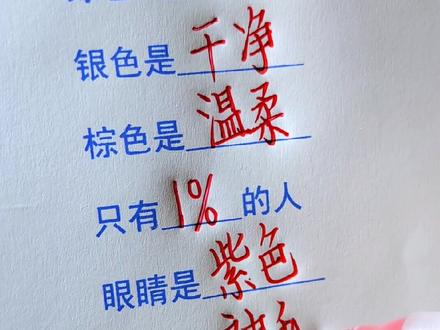 银色是干净
棕色是温柔
只有1%的人
眼睛是紫色